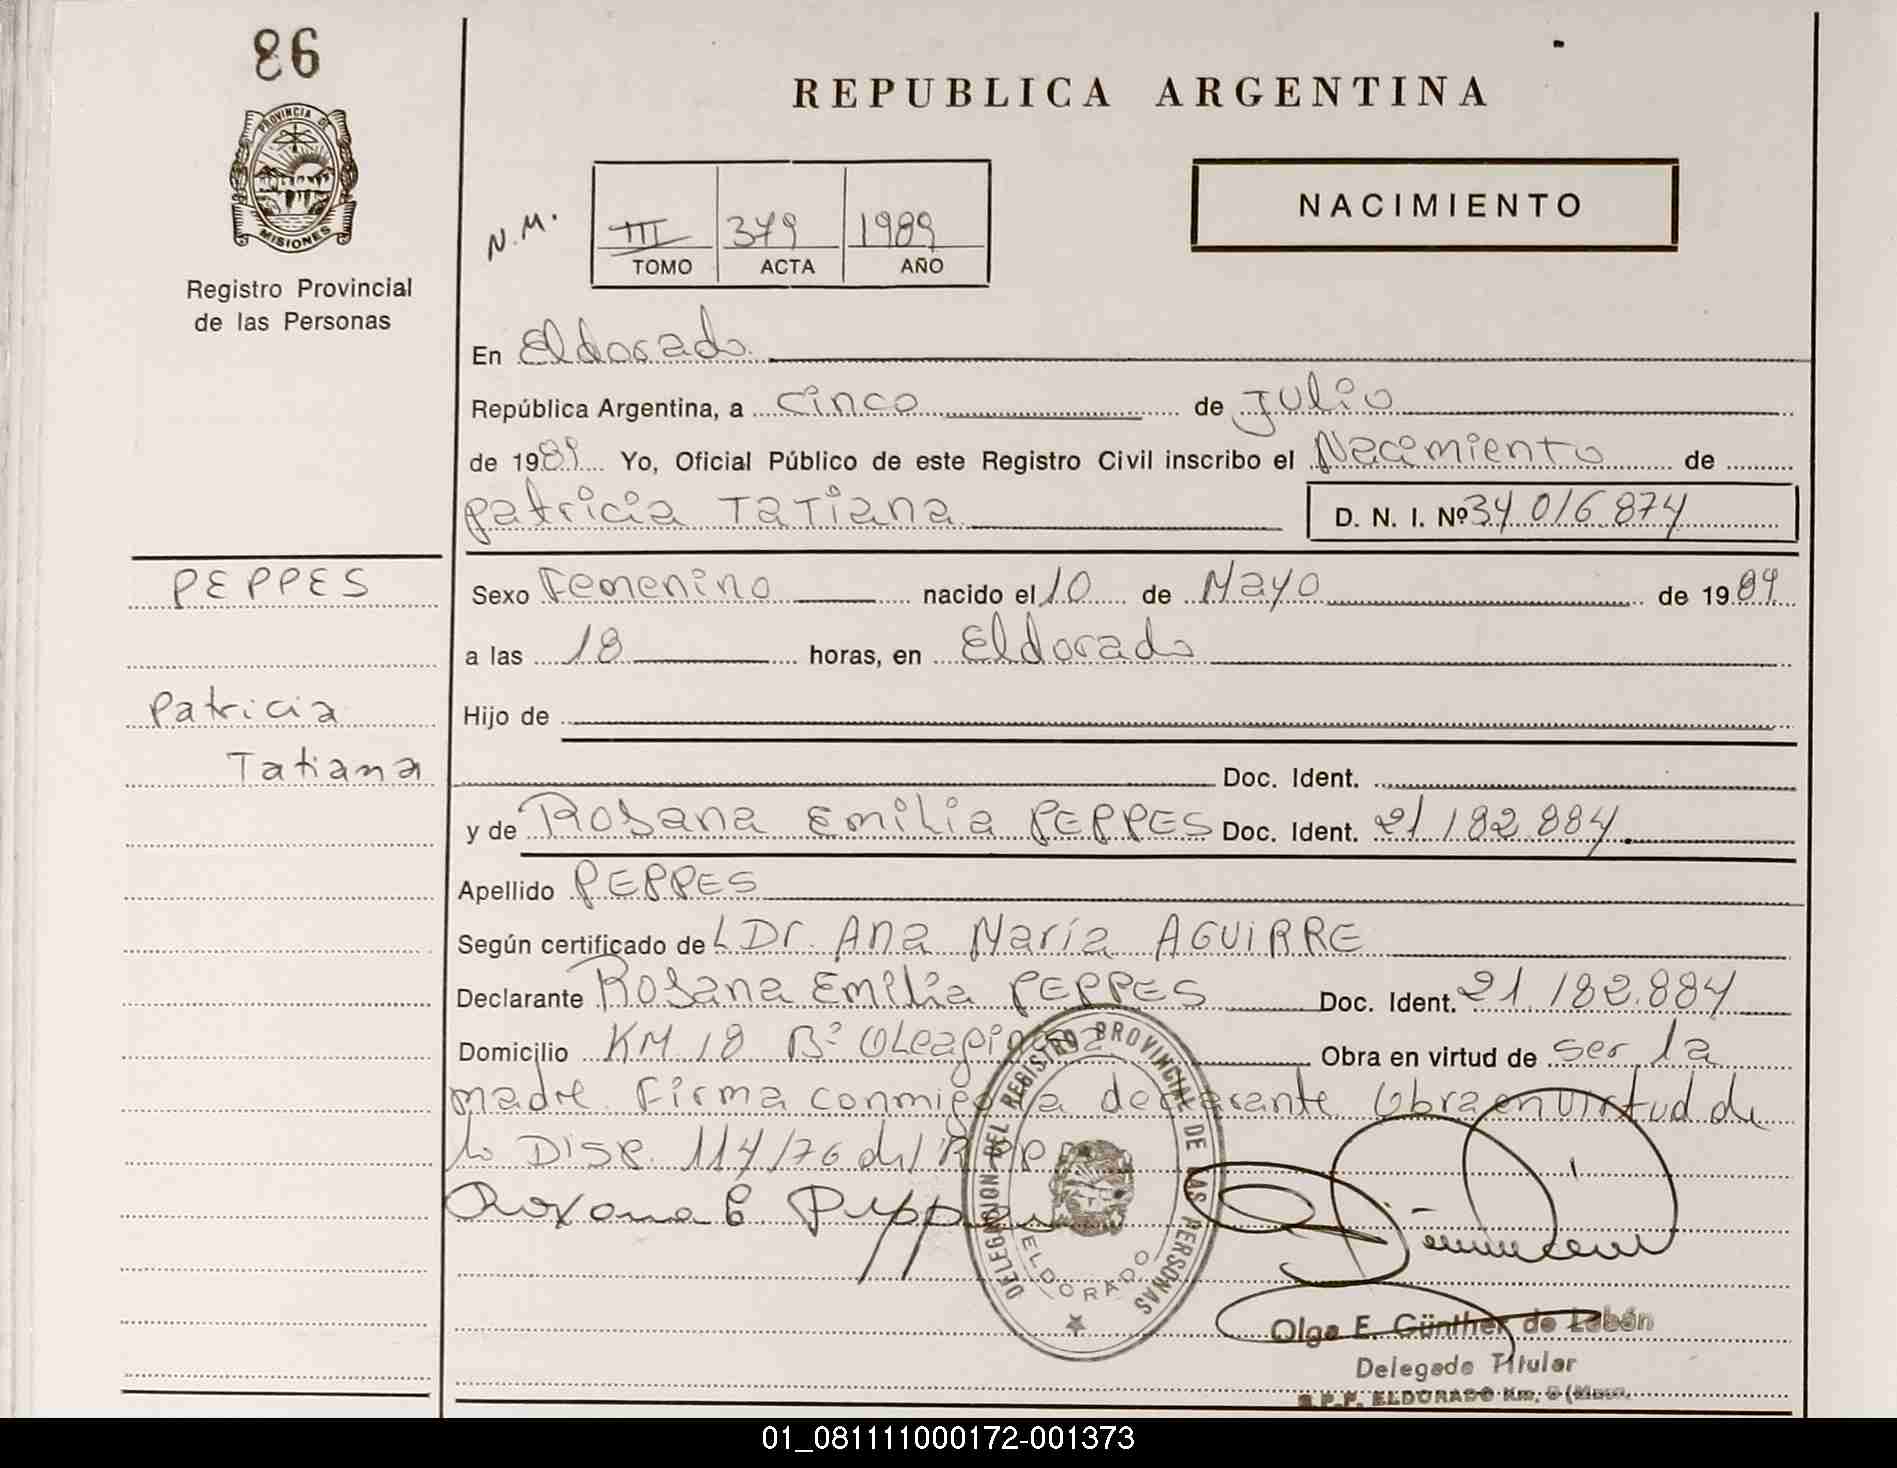 86
PROVINCIA DE
MISIONES
Registro Provincial
de las Personas
REPUBLICA ARGENTINA
NACIMIENTO
N.M.
III 379 1989
TOMO ACTA AÑO
En Eldorado
República Argentina, a cinco de Julio
de 1989 Yo, Oficial Público de este Registro Civil inscribo el Nacimiento de
Patricia Tatiana D. N. I. Nº 34.016.874
PEPPES
Patricia
Tatiana
Sexo Femenino nacido el 10 de Mayo de 1989
a las 18 horas, en Eldorado
Hijo de
Doc. Ident.
y de Rosana Emilia PEPPES Doc. Ident. 21.182.884.
Apellido PEPPES
Según certificado de LDr. Ana María AGUIRRE
Declarante Rosana Emilia PEPPES Doc. Ident. 21.182.884
Domicilio KM 18 Bº Obra en virtud de ser la
madre. Firma conmigo la declarante Obra en virtud de
la Disp. 114/76 del RPP
Roxana E. Peppes
DELEGACION DEL REGISTRO PROVINCIAL DE LAS PERSONAS
ELDORADO
Olga E. Günther de Labán
Delegado Titular
R.P.P. ELDORADO Km. 9 (Mnes.
01_081111000172-001373